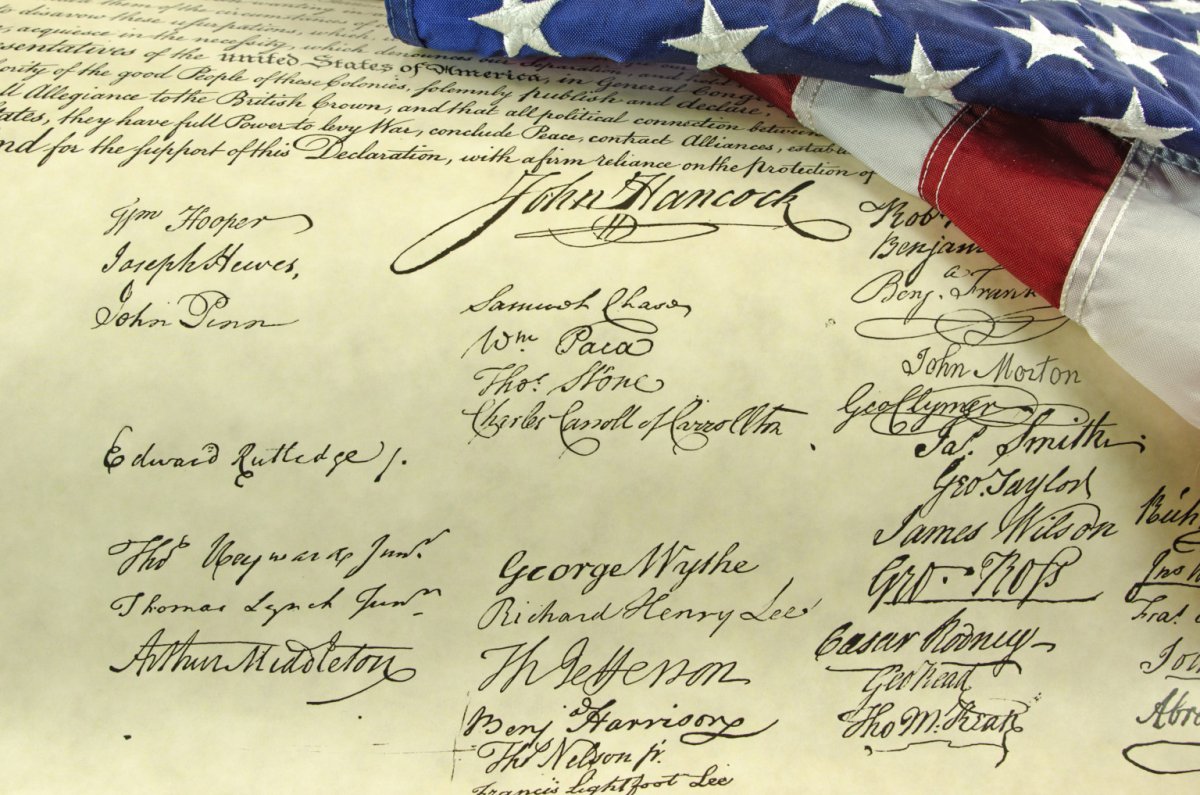 to disavow these usurpations, which,
acquiesce in the necessity, which denounces our Separation, and
Representatives of the united States of America, in General Cong
ority of the good People of these Colonies, solemnly publish and declare,
ll Allegiance to the British Crown, and that all political connection between
tates, they have full Power to levy War, conclude Peace, contract Alliances, establ
nd for the support of this Declaration, with a firm reliance on the protection of
John Hancock
Wm Hooper
Joseph Hewes,
John Penn
Edward Rutledge /.
Thos Heyward Junr.
Thomas Lynch Junr.
Arthur Middleton
Samuel Chase
Wm. Paca
Thos. Stone
Charles Carroll of Carrollton
George Wythe
Richard Henry Lee
Th Jefferson
Benja Harrison
Thos Nelson jr.
Francis Lightfoot Lee
Robt
Benjamin
Benja. Frank
John Morton
Geo Clymer
Jas. Smith.
Geo. Taylor
James Wilson
Geo. Ross
Caesar Rodney
Geo Read
Tho M:Kean
Rich
Fras.
Abra